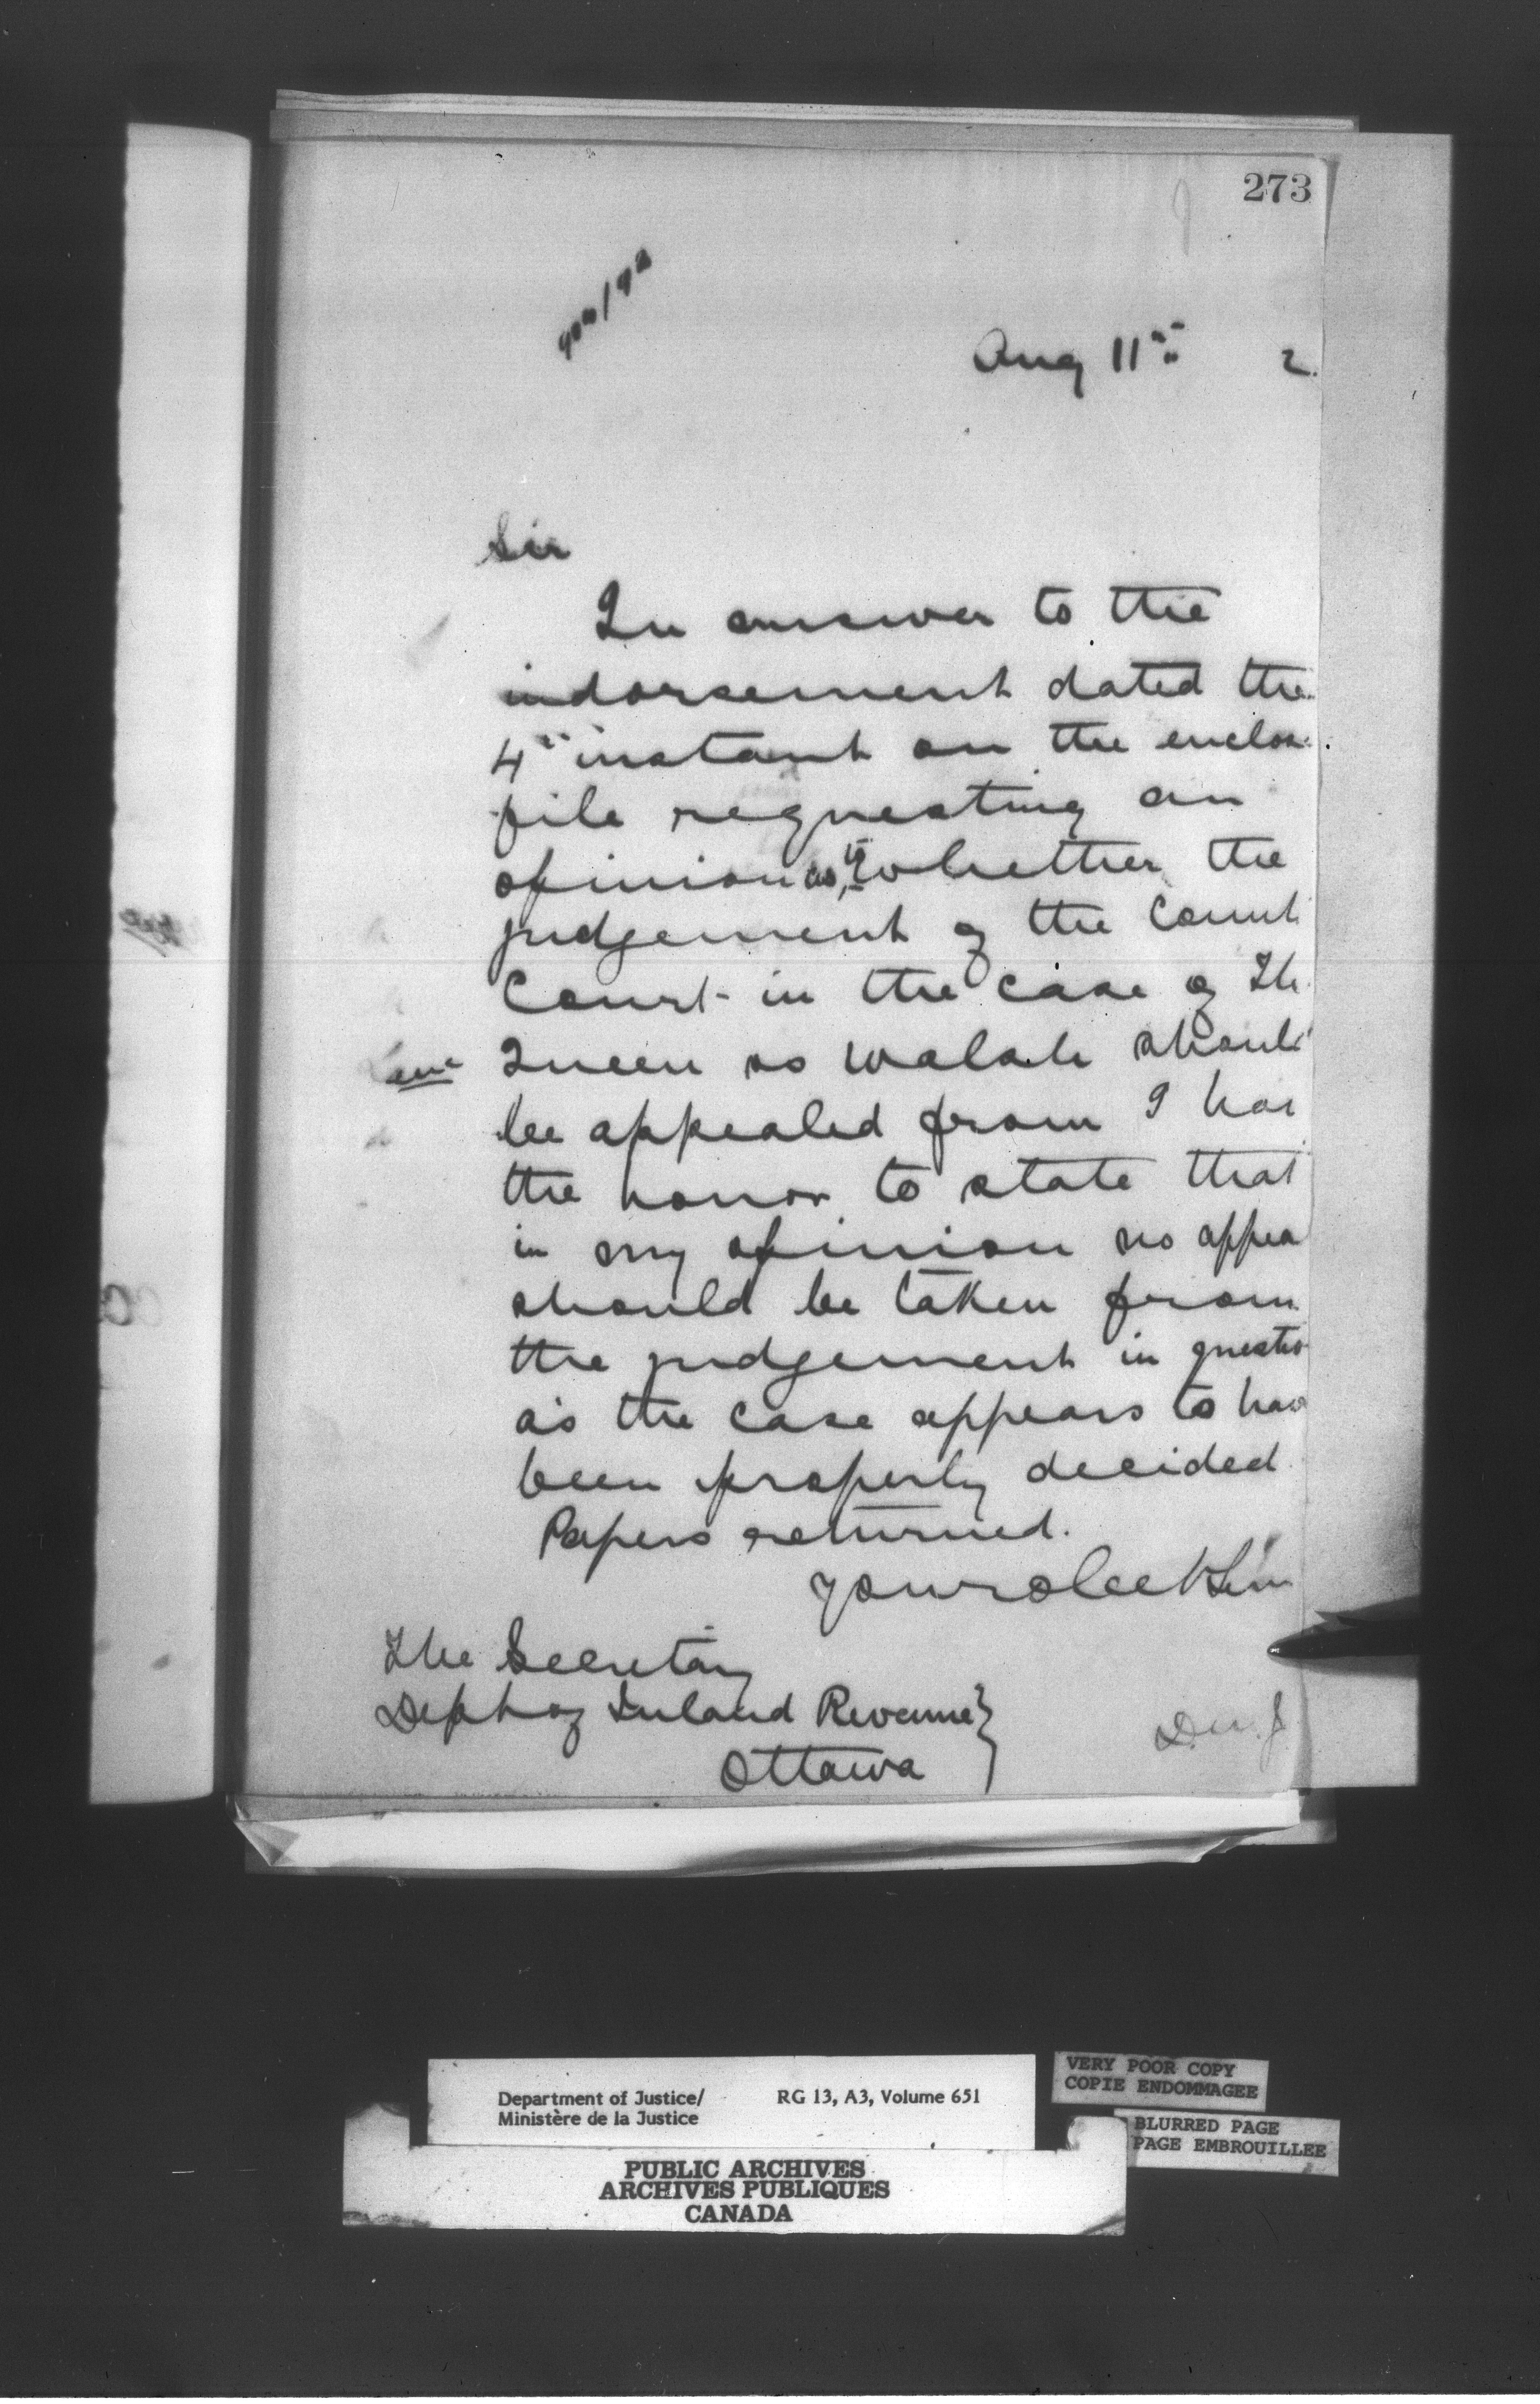 273
Aug 11th 2.
Sir
In answer to the
indorsement dated the
4th instant on the enclos
file requesting an
opinion as to whether the
judgement of the Count
Court in the case of Th
Queen vs Walsh should
be appealed from I hav
the honor to state that
in my opinion no appea
should be taken from
the judgement in questio
as the case appears to hav
been properly decided
Papers returned.
Your obedt Serv
The Secretary
Dept of Inland Revenue }
Ottawa
D.M.J
Department of Justice/ RG 13, A3, Volume 651
Ministère de la Justice
VERY POOR COPY
COPIE ENDOMMAGEE
BLURRED PAGE
PAGE EMBROUILLEE
PUBLIC ARCHIVES
ARCHIVES PUBLIQUES
CANADA